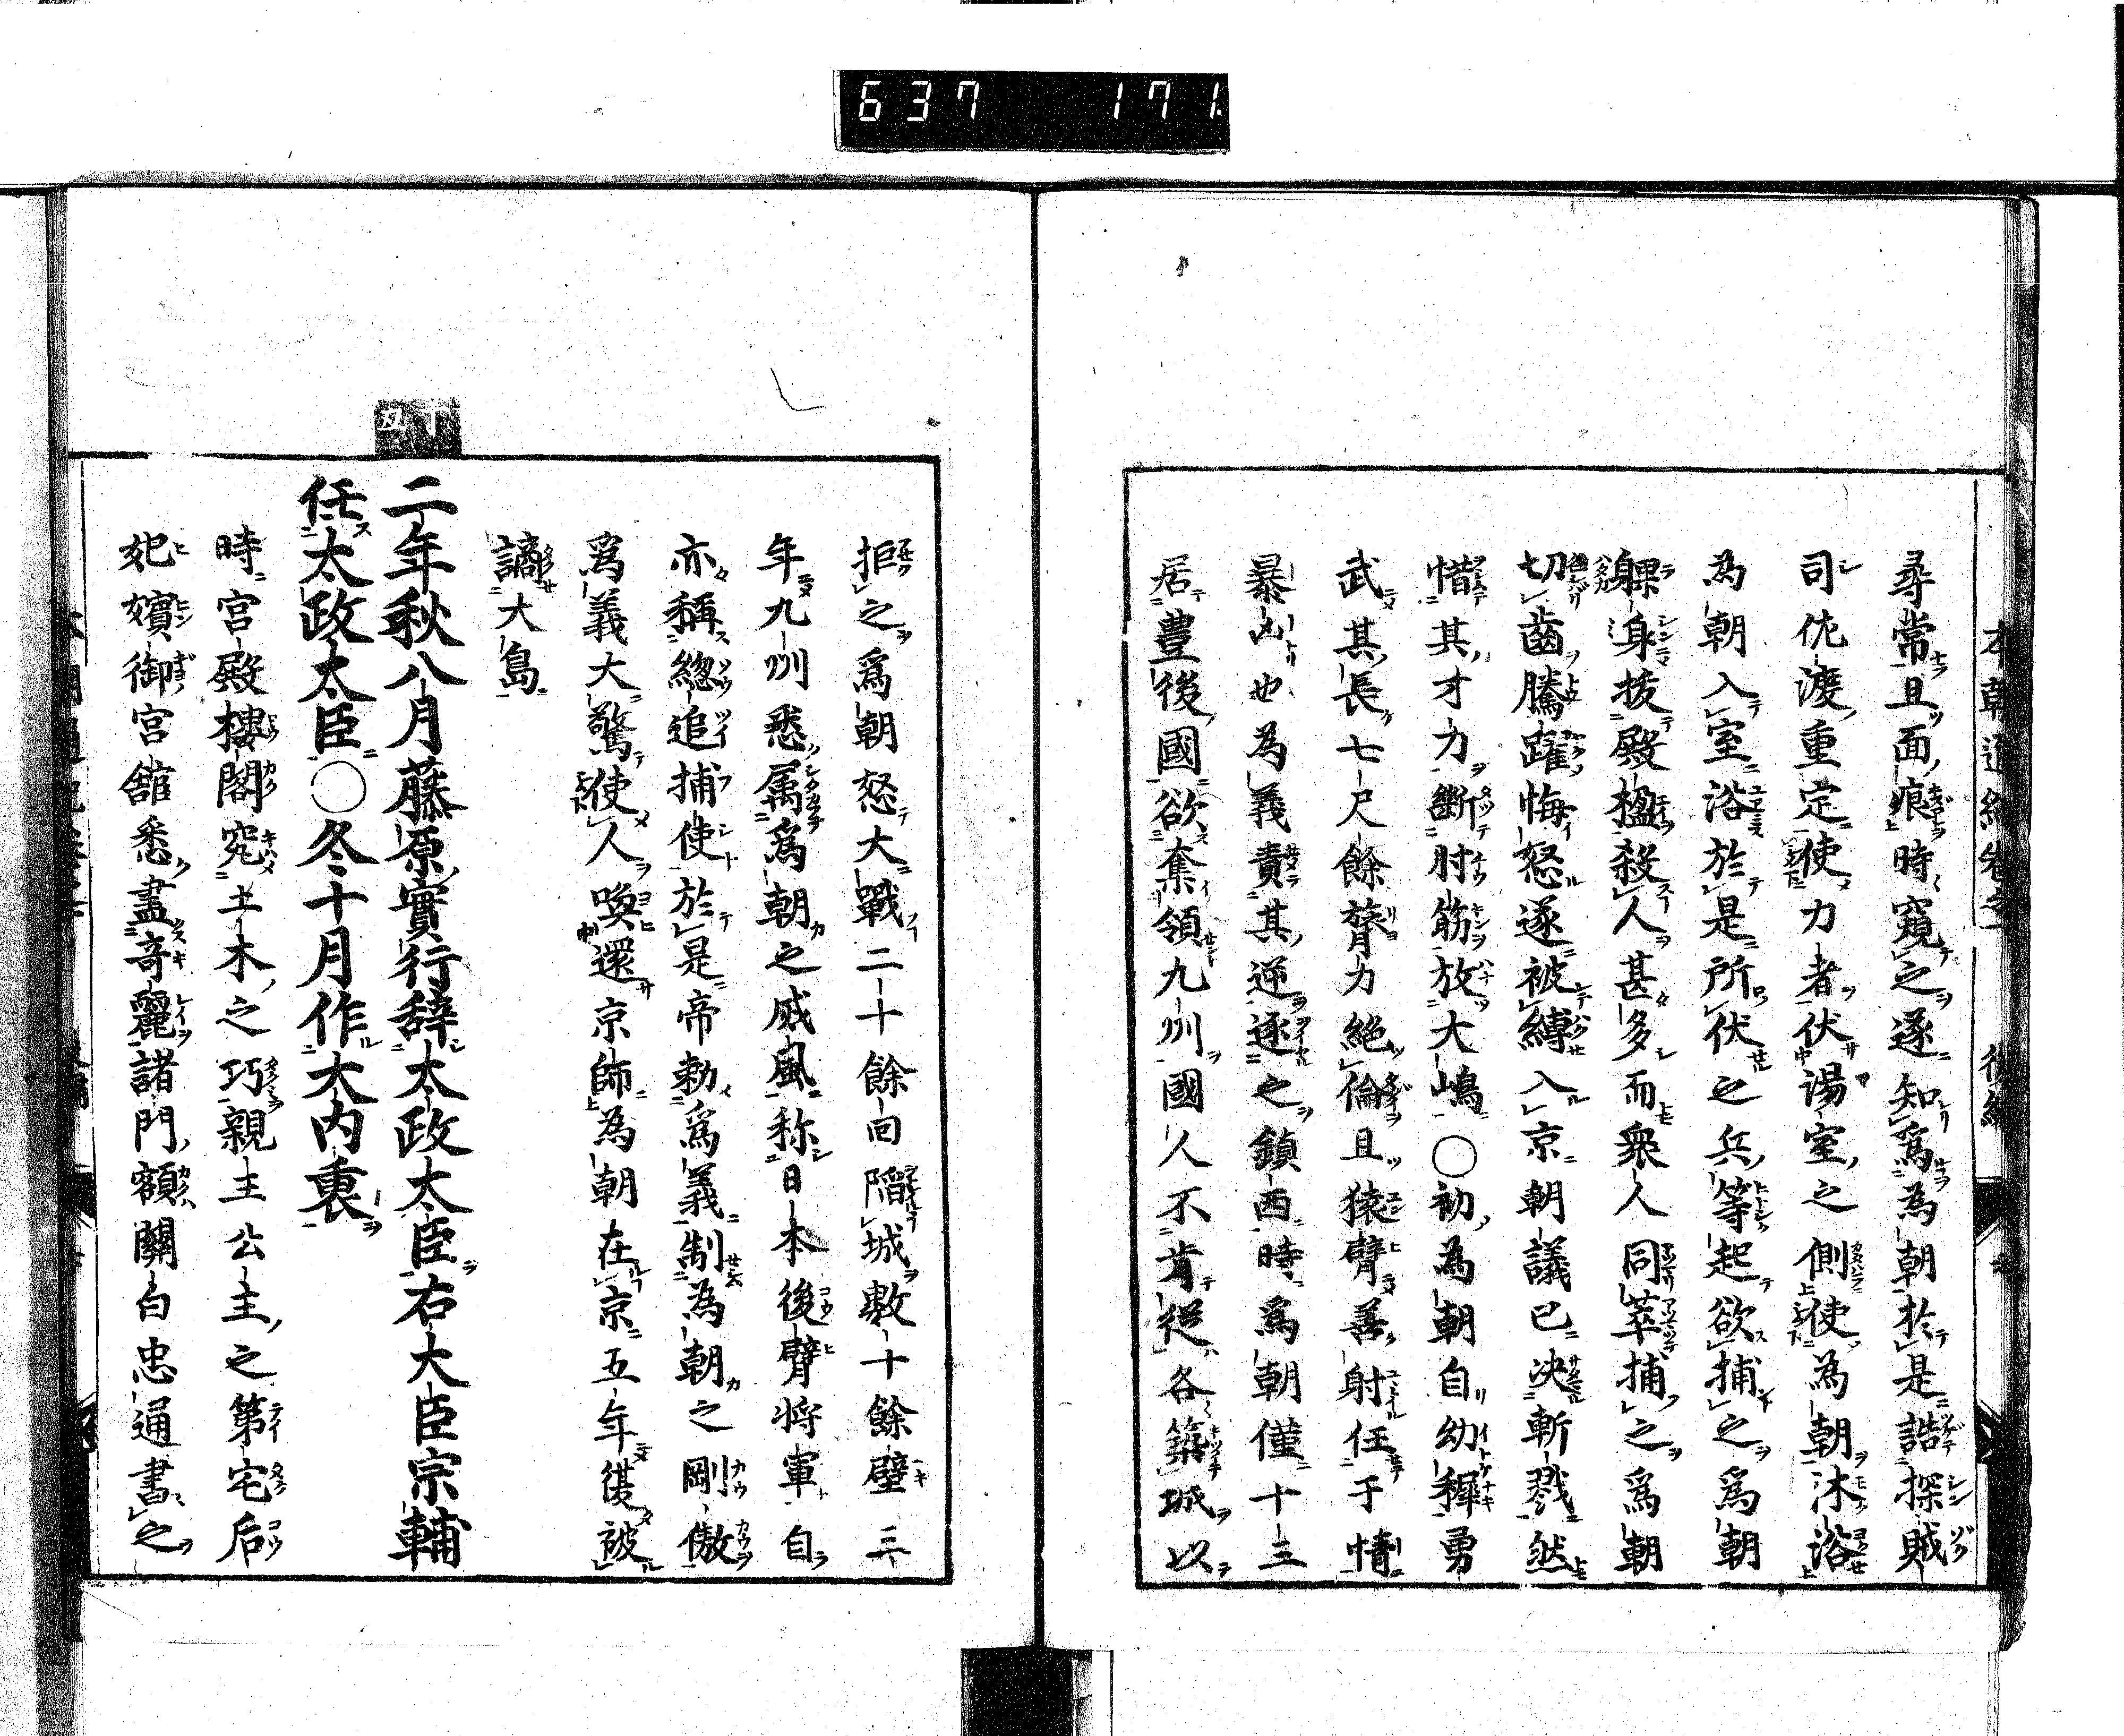 637 171
尋常且面痕時窺之遂知爲為朝於是誥探賊
司佐渡重定使力者伏湯室之側使為朝沐浴
為朝入室浴於是所伏之兵等起欲捕之爲朝
躶身拔殿楹殺人甚多而衆人同萃捕之爲朝
切齒騰躍悔怒遂被縛入京朝議已決斬戮然
惜其才力斷肘筋放大嶋〇初為朝自幼穉勇
武其長七尺餘膂力絶倫且猿臂善射任于情
暴凶也為義責其逆逐之鎮西時爲朝僅十三
居豊後國欲奪領九州國人不肯從各築城以
拒之爲朝怒大戰二十餘回陷城數十餘壁三
年九州悉属爲朝之威風称日本後臂将軍自
亦稱緫追捕使於是帝勅爲義制為朝之剛傲
爲義大驚使人喚還京師為朝在京五年復被
謫大島
丁丑
二年秋八月藤原實行辞太政大臣右大臣宗輔
任太政大臣〇冬十月作大内裏
時宮殿樓閣究土木之巧親王公主之第宅后
妃嬪御宮舘悉盡奇麗諸門額關白忠通書之